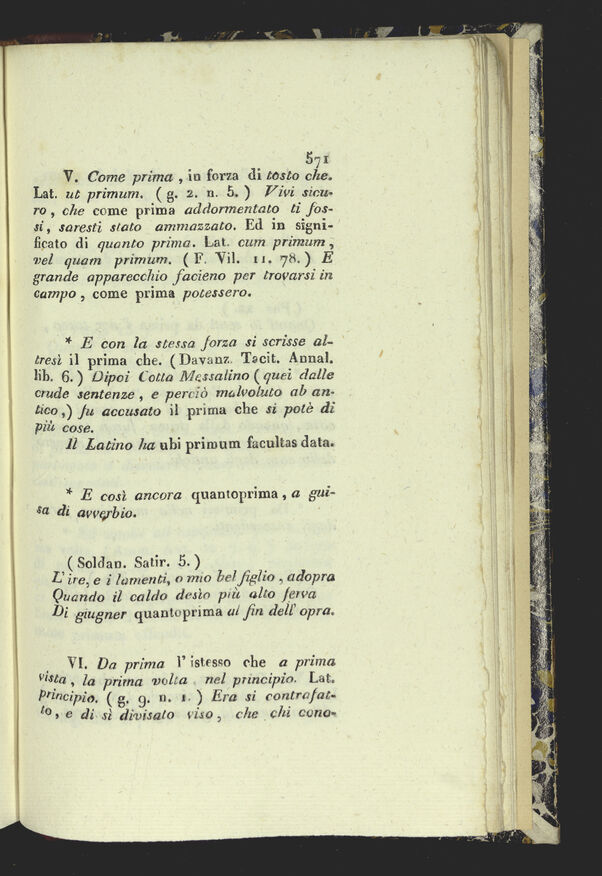 571
V. Come prima, in forza di tosto che.
Lat. ut primum. (g. 2. n. 5.) Vivi sicu-
ro, che come prima addormentato ti fos-
si, saresti stato ammazzato. Ed in signi-
ficato di quanto prima. Lat. cum primum,
vel quam primum. (F. Vil. 11. 78.) E
grande apparecchio facieno per trovarsi in
campo, come prima potessero.
* E con la stessa forza si scrisse al-
tresì il prima che. (Davanz. Tacit. Annal.
lib. 6.) Dipoi Cotta Messalino (quei dalle
crude sentenze, e perciò malvoluto ab an-
tico,) fu accusato il prima che si potè di
più cose.
Il Latino ha ubi primum facultas data.
* E così ancora quantoprima, a gui-
sa di avverbio.
(Soldan. Satir. 5.)
L'ire, e i lamenti, o mio bel figlio, adopra
Quando il caldo desìo più alto ferva
Di giugner quantoprima al fin dell'opra.
VI. Da prima l'istesso che a prima
vista, la prima volta, nel principio. Lat.
principio. (g. 9. n. 1.) Era sì contrafat-
to, e di sì divisato viso, che chi cono-